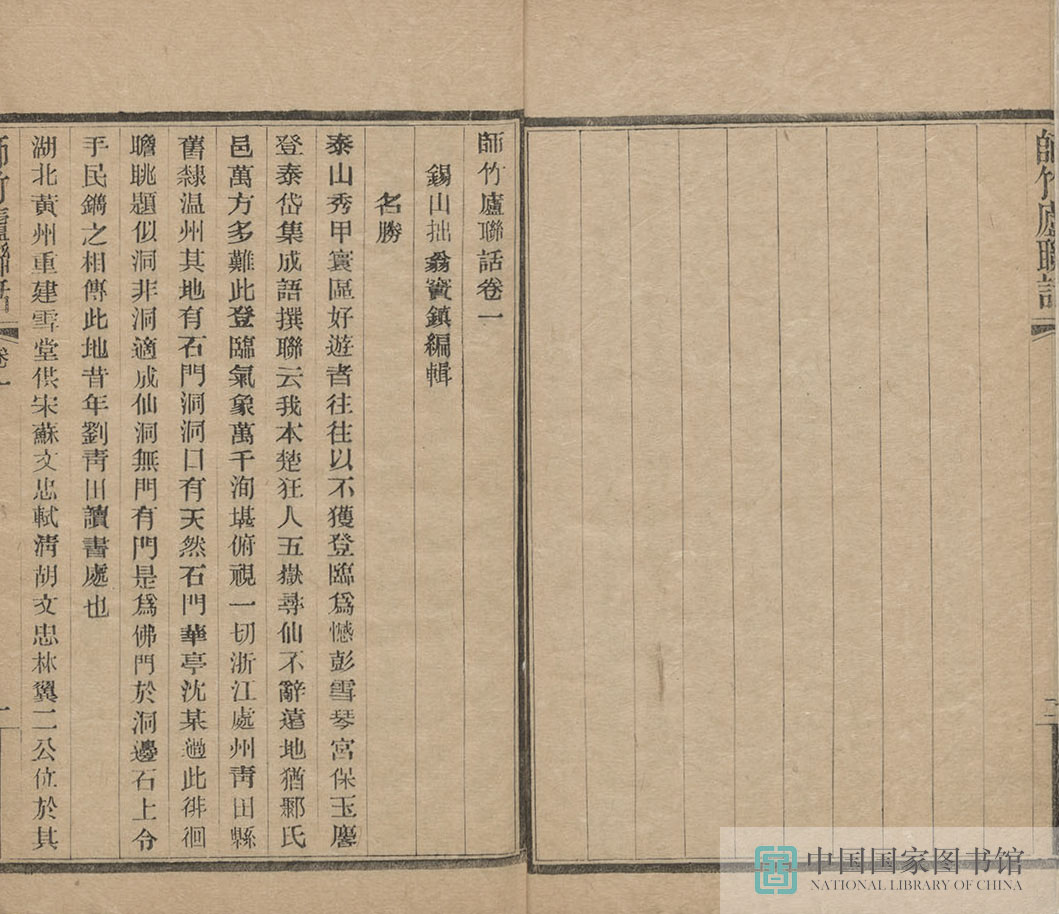 師竹廬聯話
二
師竹廬聯話卷一
錫山拙翁竇鎮編輯
名勝
泰山秀甲寰區好遊者往往以不獲登臨爲憾彭雪琴宮保玉麐
登泰岱集成語撰聯云我本楚狂人五嶽尋仙不辭遠地猶鄹氏
邑萬方多難此登臨氣象萬千洵堪俯視一切浙江處州靑田縣
舊隸温州其地有石門洞洞口有天然石門華亭沈某過此徘徊
瞻眺題似洞非洞適成仙洞無門有門是爲佛門於洞邊石上令
手民鐫之相傳此地昔年劉靑田讀書處也
湖北黃州重建雪堂供宋蘇文忠軾淸胡文忠林翼二公位於其
師竹廬聯話
卷一
一
中国国家图书馆
NATIONAL LIBRARY OF CHINA